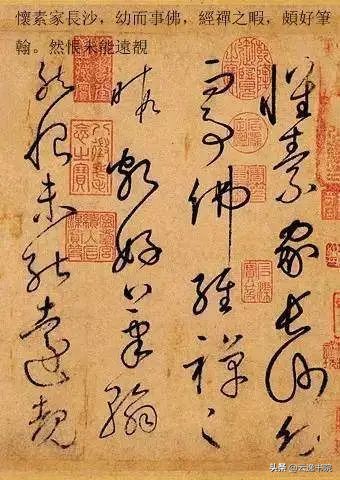 懷素家長沙，幼而事佛，經禪之暇，頗好筆
翰。然恨未能遠覩
懷素家長沙幼
而事佛經禪之
暇頗好筆翰
然恨未能遠覩
头条 @云逸书院